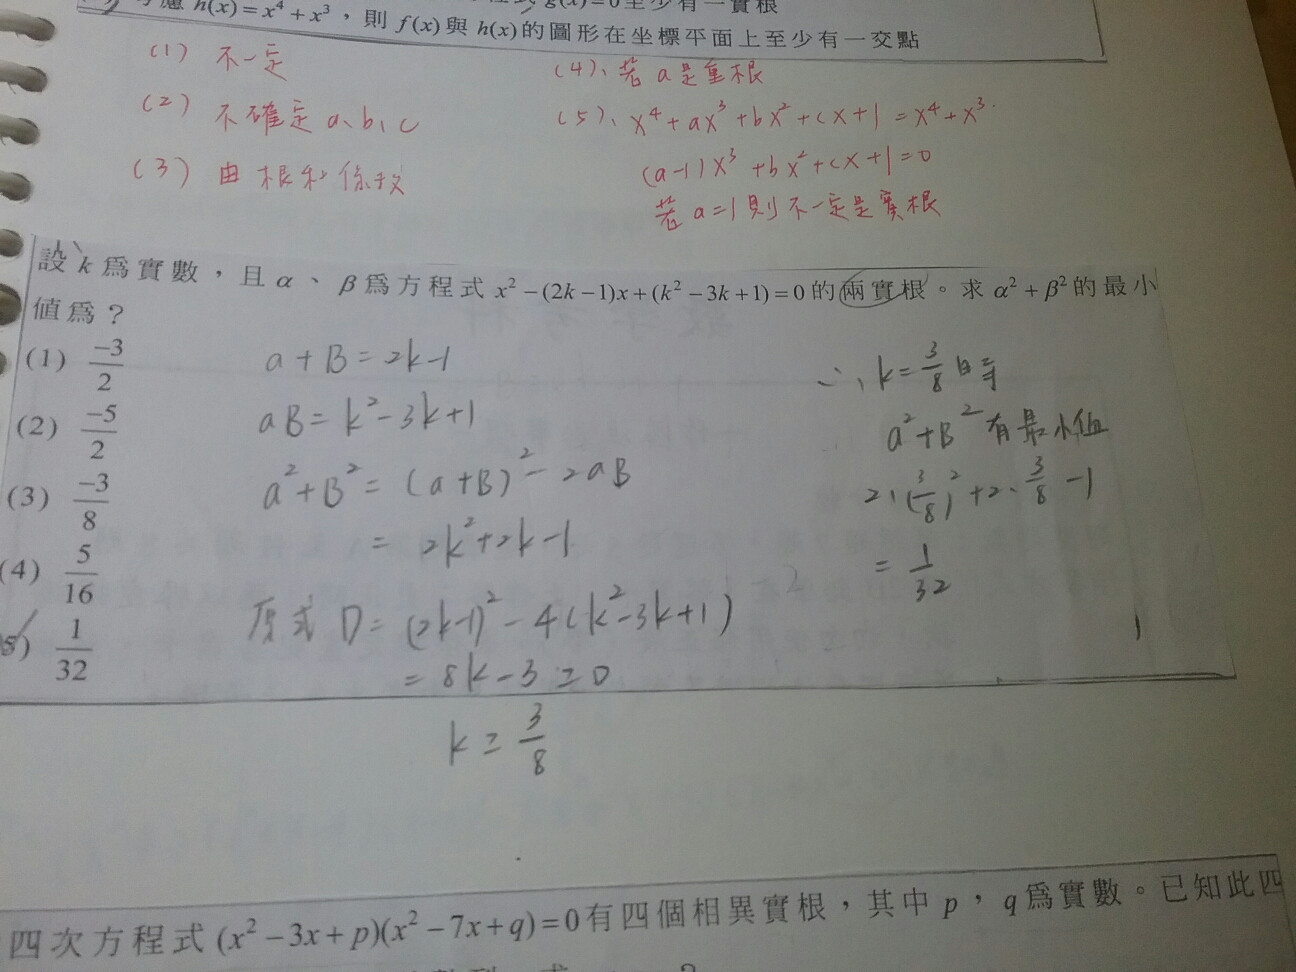 h(x)=x⁴+x³，則 f(x)與 h(x)的圖形在坐標平面上至少有一交點
(1) 不一定
(2) 不確定 a、b、c
(3) 由根和係數
(4)、若 a 是重根
(5)、x⁴+ax³+bx²+cx+1=x⁴+x³
(a-1)x³+bx²+cx+1=0
若 a=1則不一定是實根
設 k 為實數，且 α、β為方程式 x²-(2k-1)x+(k²-3k+1)=0 的兩實根。求 α²+β²的最小
值為？
(1) -3/2
(2) -5/2
(3) -3/8
(4) 5/16
(5) 1/32
a+B=2k-1
aB=k²-3k+1
a²+B²=(a+B)²-2aB
=2k²+2k-1
原式 D=(2k-1)²-4(k²-3k+1)
=8k-3≥0
k≥3/8
∴k=3/8時
a²+B²有最小值
2·(3/8)²+2·3/8-1
=1/32
四次方程式 (x²-3x+p)(x²-7x+q)=0有四個相異實根，其中 p，q為實數。已知此四